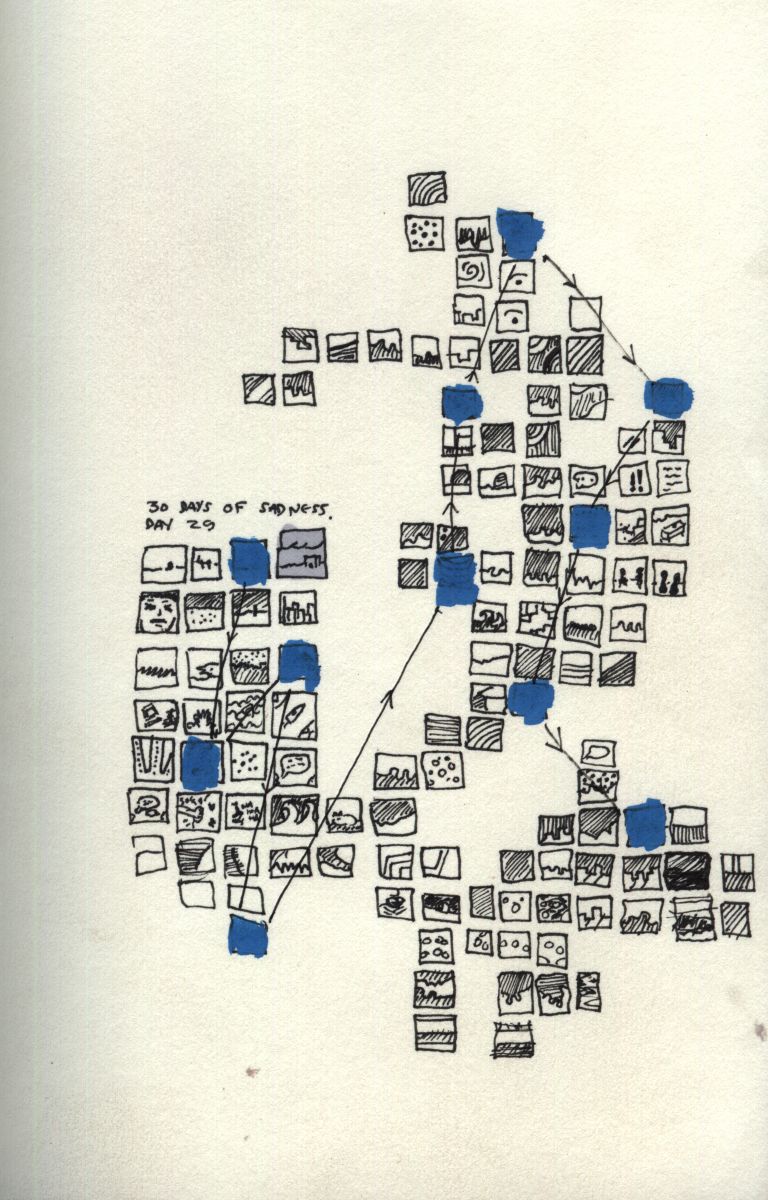 30 DAYS OF SADNESS.
DAY 29
!!